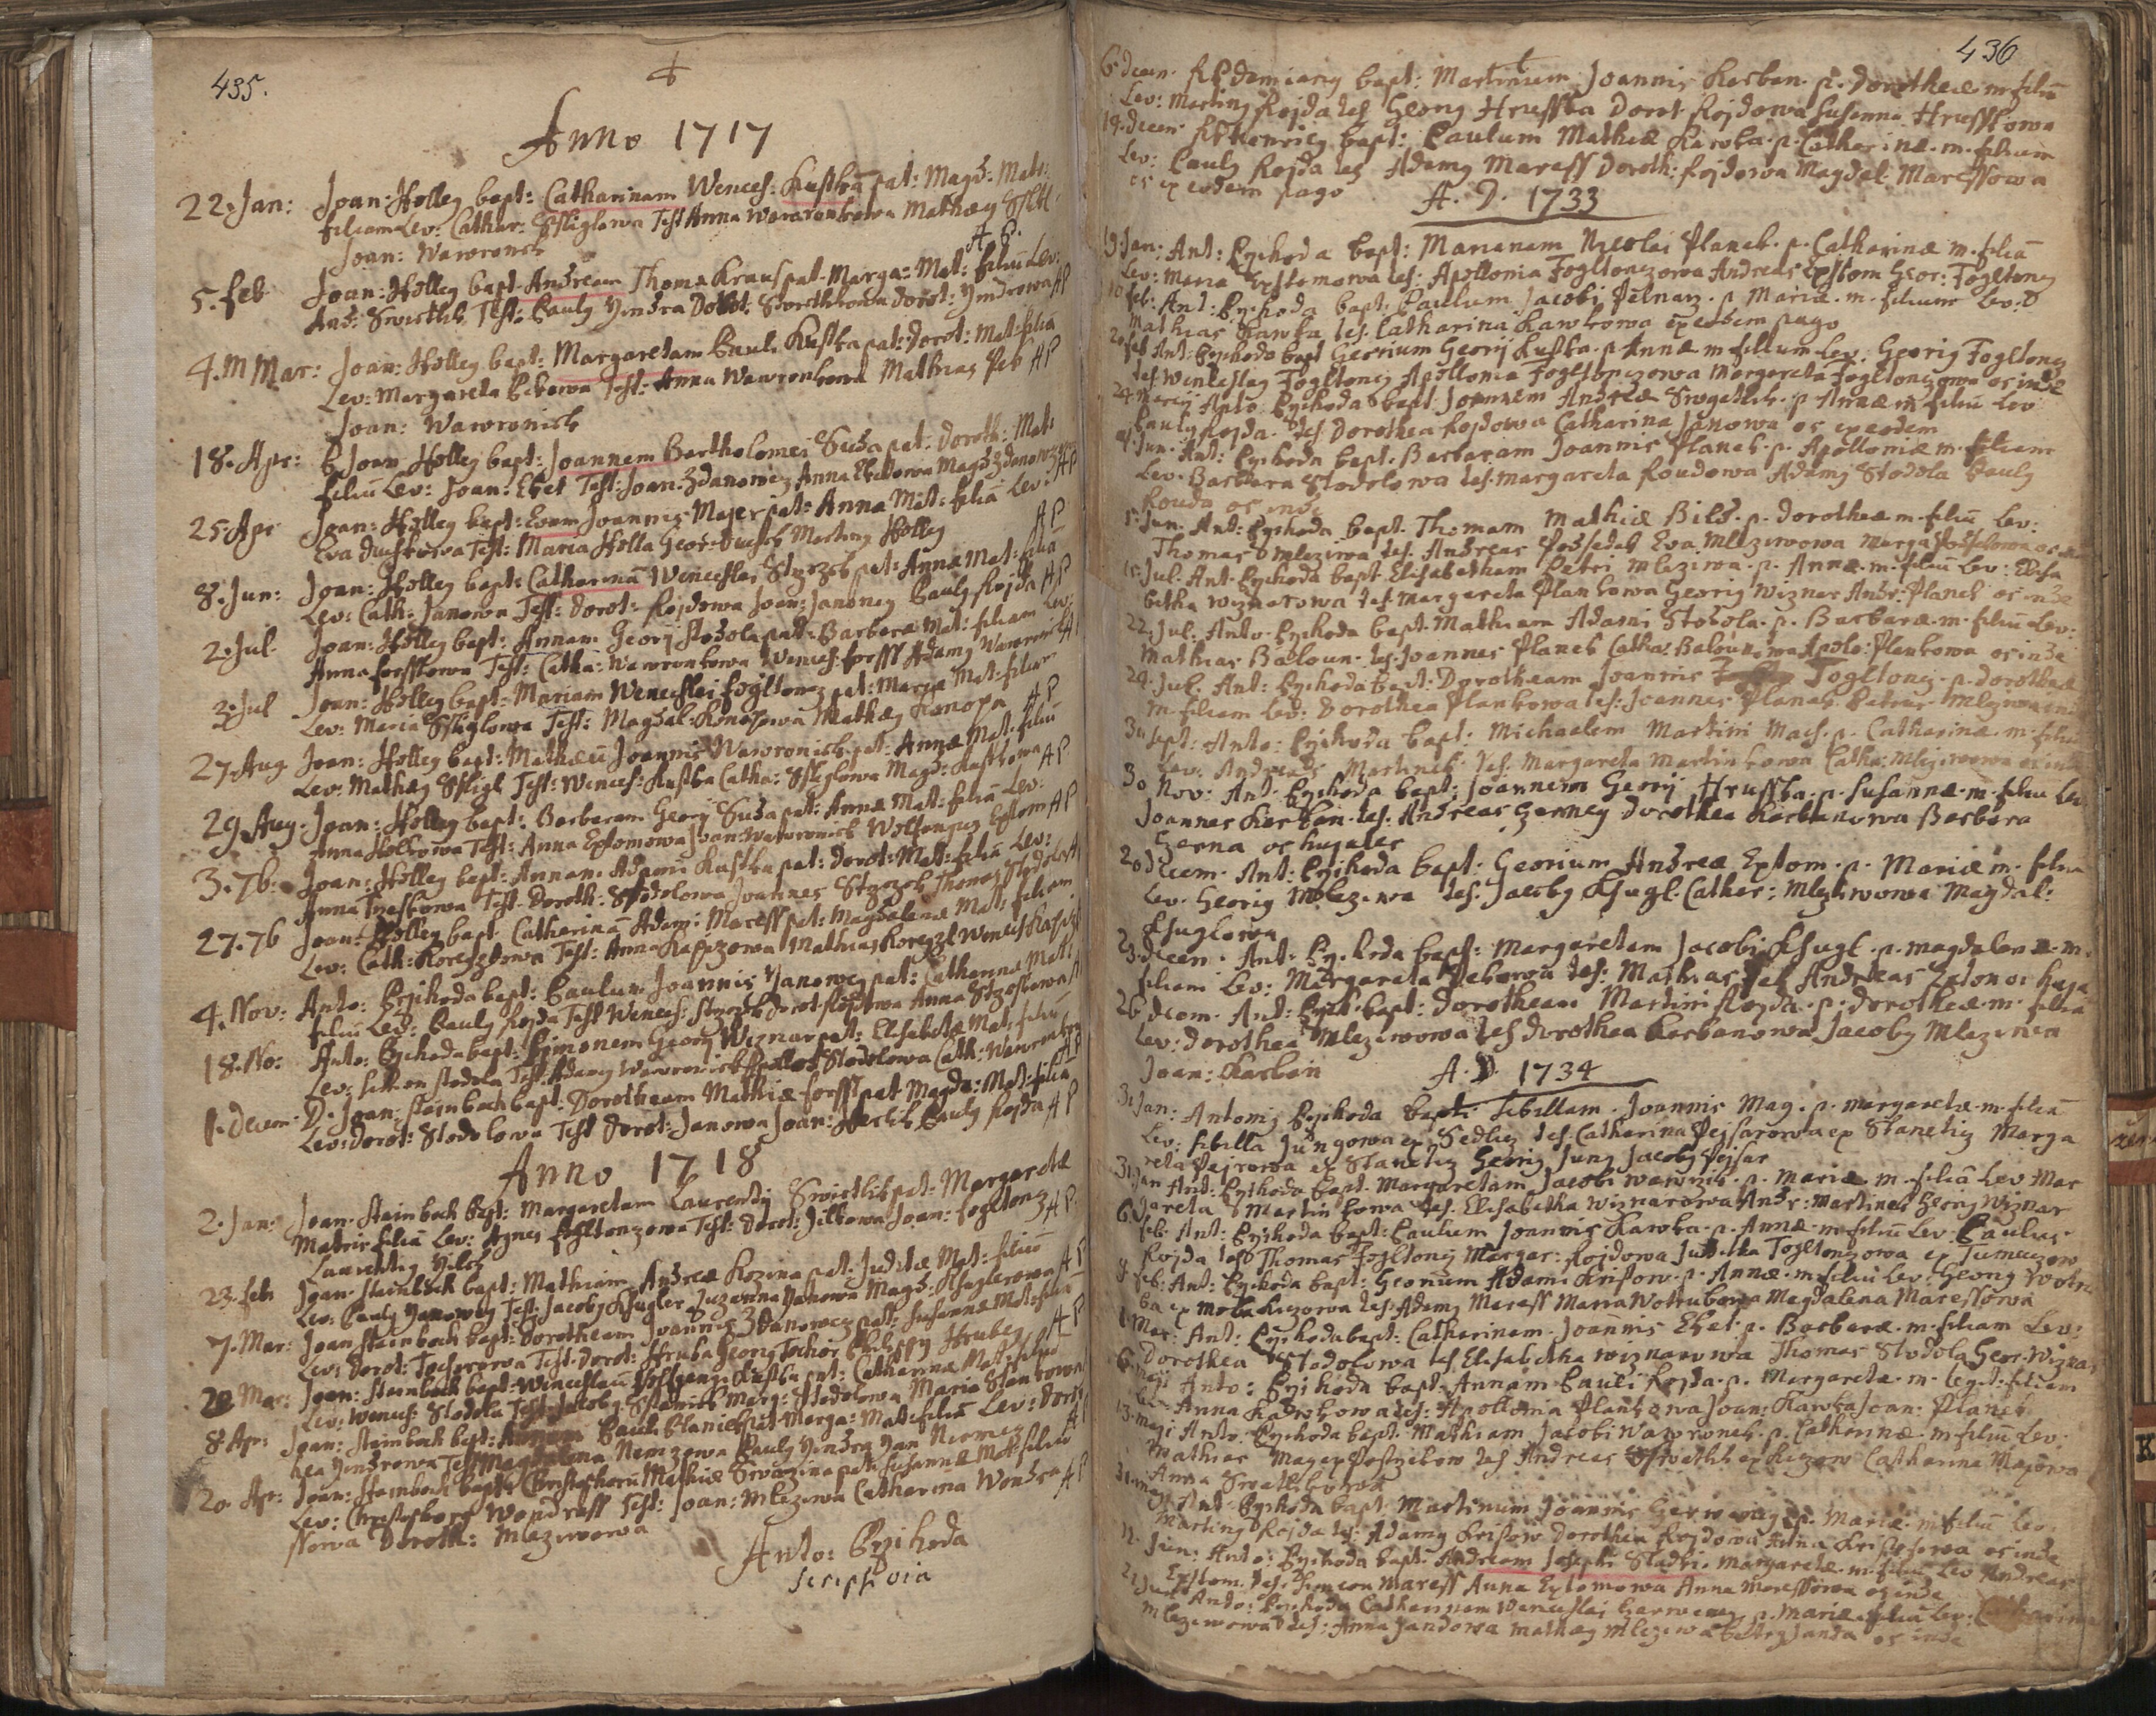 435.
Anno 1717
22. Jan: Joan: Holley bapt: Catharinam Wences: Kustka pat: Magd: Mat:
filiam Lev: Cathar: Test Anna Wawronkowa Mathæy
Joan: Wawronek A P.
5. Feb Joan: Holley bapt Andream Thoma Kraus pat. Marga: Mat: filiū Lev:
And: Swietlik Test: Pauly Yindra Dorot: Swietlikowa Dorot: Yindrowa A P
4. Mar: Joan: Holley bapt: Margaretam Pauli Kustka pat: Dorot: Mat: filiā
Lev: Margareta Pekowa Test: Anna Wawronkowa Mathias Pek A P
Joan: Wawronick
18. Apr: Joan Holley bapt: Joannem Bartholomei Suda pat: Doroth: Mat:
filiū Lev: Joan: Ebel Test: Joan. Zdanowicz Anna Ebelowa Magd: Zdanowa A P
25. Apr Joan: Holley bapt: Evam Joannis Majer pat: Anna Mat: filiā Lev:
Eva Test: Maria Holla Geor: Marting Holley A P
8. Jun: Joan: Holley bapt: Catharinā Wenceslai pat: Annæ Mat: filiā
Lev: Cath: Janowa Test: Dorot: Rojdowa Joan: Janoney Pauly Rojda A P
2. Jul Joan: Holley bapt: Annam Georÿ Stodola pat: Barbara Mat: filiam Lev:
Anna Forsstowa Test: Catha: Wawronkowa Wences: Forsst Adamy Wawronick A P
3. Jul Joan: Holley bapt: Mariam Wenceslei Fogltoncz pat: Maria Mat: filiam
Lev: Maria Test: Magdal: Konopowa Mathæy Konopa A P
27. Aug Joan: Holley bapt: Mathæū Joannis Wawronick pat: Annæ Mat: filiū
Lev: Mathæy Test: Wences: Kustka Catha: Magd: Kustkowa A P
29. Aug. Joan: Holley bapt: Barbaram Georÿ Suda pat: Annæ Mat: filiā Lev:
Anna Holkowa Test: Anna Extomowa Joan: Wawronick Wolfgang Extom A P
3. 7b: Joan: Holley bapt: Annam Adami Kustka pat: Dorot: Mat: filiā Lev:
Anna Test: Doroth: Stodolowa Joannes Thomas Stodola
27. 7b Joan: Holley bapt: Catharinā Adami Maress pat: Magdalenæ Mat: filiam
Lev: Cath: Test: Anna Mathias Wences
4. Nov: Anto: Przihoda bapt: Paulum Joannis Janowey pat: Catharina Mat:
filiū Lev: Pauly Rojda Test Wences: Dorot: Rojdowa Anna
18. No: Anto: Przihoda bapt: Simonem Georÿ Wiznar pat: Elisabetæ Mat: filiū
Lev: Simon Stodola Test: Adamy Wawronick Stodolowa Cath: Wawronkowa A P
1. Decem D. Joan: Steinbach bapt: Dorotheam Mathiæ Forsst pat Magda: Mat: filiā
Lev: Dorot: Stodolowa Test Dorot: Janowa Joan: Pauly Rojda A P
Anno 1718
2. Jan: Joan: Steinbach bapt: Margaretam Laurentÿ Swietlik pat: Margaretæ
Matris filiā Lev: Agnes Fogltonczowa Test: Dorot: Jilkowa Joan: Fogltoncz A P.
Laurenting Yilek
23. feb Joan: Steinbach bapt: Mathiam Andreæ Kozina pat: Juditæ Mat: filiū
Lev: Pauly Janowey Test: Jacoby Ksugler Zuzanna Janowa Magd: Ksuglerowa A P
7. Mar: Joan Steinbach bapt: Dorotheam Joannis Zdanowcz pat: Susannæ Mat: filiā
Lev: Dorot: Tochorowa Test: Dorot: Hruba Georg Tochor Hrubey A P
Mar: Joan: Steinbach bapt: Wenceslaū Wolfgangi Kustka pat: Catharina Mat: filiū
Lev: Wences: Stodola Test: Jacoby Marg: Stodolowa Maria
8 Apr: Joan: Steinbach bapt: Annam Pauli Planick pat Marga: Mat: filiā Lev: Doro
thea Yindrowa Test Magdalena Nemczowa Pauly Yindra Jan Niemecz
20. Apr: Joan: Steinbach bapt: Christophorū Mathiæ pat: Susannæ Mat: filiū
Lev: Christophorg Wondrass Test: Joan: Mleziwa Catharina Wondra A P
ssowa Doroth: Mlezivowa
Anto: Przihoda
scripsi via
436
6. decem. R P Damiang bapt: Martinum Joannis Karban. p. Dorotheæ m filiū
Lev: Marting Rojda tes Georg Hrusska Dorot Rojdowa Susanna Hrusskowa
19. decem R P Henricg bapt: Paulum Mathiæ Kawka. p. Catharinæ. m. filium
Lev: Pauly Rojda tes Adamy Maress Doroth: Rojdowa Magdal: Maressowa
os ex eodem pago
A. D. 1733
19 Jan. Ant: Przihoda bapt: Marianam Nicolai Planek. p. Catharinæ m. filiā
Lev: Maria Extomowa tes: Apollonia Fogltonczowa Andreas Extom Geor: Fogltoncz
10 feb: Ant: Przihoda bapt: Paulum Jacobi Pelnarz. p Mariæ. m. filium Lev:
Mathias Kawka tes. Catharina Kawkowa ex eodem pago
20. feb Ant: Przihoda bapt Georium Georÿ Kustka. p Annæ m filium Lev: Georig Fogltoncz
tes Wenceslay Fogltoncz Apollonia Fogltonczowa Margareta Fogltonczowa os inde
24. Marcÿ Anto: Przihoda bapt: Joannem Andreæ Swegetlik. p Annæ m filiū Lev
Pauly Rojda. tes Dorothea Rojdowa Catharina Janowa os ex eodem
4. Jun. Ant: Przihoda bapt. Barbaram Joannis Planek. p. Apolloniæ m. filiam
Lev. Barbara Stodolowa tes. Margareta Roudowa Adamy Stodola Pauly
Rouda os inde
5. Jun. Ant: Przihoda bapt. Thomam Mathiæ Bilÿ. p. Dorotheæ m. filiū Lev:
Thomas Mleziwa tes. Andreas Podsedek Eva Mlezivowa Marga
15. Jul. Ant. Przihoda bapt Elisabetham Petri Mleziwa. p. Annæ. m. filiā Lev: Elisa
betha Wiznarowa tes. Margareta Plankowa Georig Wizner Andr: Planek os inde
22. Jul. Anto. Przihoda bapt. Mathiam Adami Stodola. p. Barbaræ. m. filiū Lev:
Mathias Baloun. tes. Joannes Planek Catha: Balounowa Apolo: Plankowa os inde
29. Jul. Ant: Przihoda bapt. Dorotheam Joannis Fogltoncz. p. Dorotheæ
m. filiam Lev: Dorothea Plankowa tes: Joannes Planek Petrus Mleziwa
30 Sept: Anto: Przihoda bapt. Michaelem Martini Mach. p. Catharinæ. m. filiū
Lev: Andreas Martinek. tes. Margareta Martinkowa Catha: Mlezivowa os inde
30 Nov: Ant. Przihoda bapt: Joannem Georÿ Hrusska. p. Susannæ. m. filiū Lev
Joannes Karban. tes. Andreas Czerney Dorothea Karbanowa Barbara
Czerna os hujates
20 decem. Ant: Przihoda bapt: Georium Andreæ Extom. p. Mariæ m. filiū
Lev. Georig Mleziwa tes. Jacoby Ksugl. Cather: Mlezivowa Magdal:
Ksuglowa
23. decem. Ant: Przihoda bapt: Margaretam Jacobi Ksugl. p. Magdalenæ. m.
filiam Lev: Margareta Pekowa tes: Mathias Pek Andreas Extom os huja
26 decem. Ant: Przih: bapt: Dorotheam Martini Rojda. p. Dorotheæ. m. filiā
Lev: Dorothea Mlezivowa tes Dorothea Karbanowa Jacoby Mleziwa
Joan: Karban
A. D. 1734
3. Jan: Antonig Przihoda bapt: Sibillam. Joannis Mag. p. Margaretæ. m. filiā
Lev: Sibilla Jungowa ex Sedlicz tes. Catharina Pejsarowa ex Stanetiz Marga
reta Pejrowa ex Stanetiz Georig Jung Jacoby Pejsar
31. Jan Ant: Przihoda bapt. Margaretam Jacobi Wawrick. p. Mariæ. m. filiā Lev Mar
gareta Martinkowa tes. Elisabetha Wiznarowa Andr: Martinek Georig Wiznar
6. feb: Ant: Przihoda bapt: Paulum Joannis Kawka. p. Annæ. m. filiū Lev: Paulus
Rojda tes Thomas Fogltoncz Margar: Rojdowa Juditha Fogltonczowa ex Tumaczow
8. feb: Ant: Przihoda bapt: Georium Adami Kristow. p. Annæ. m filiū Lev: Georg Wotru
ba ex Mala tes. Adamy Maress Maria Wotrubowa Magdalena Maressowa
1. Mar: Ant: Przihoda bapt: Catharinam. Joannis Ebel. p. Barbaræ. m. filiam Lev:
Dorothea Stodolowa tes. Elisabetha Wiznarowa Thomas Stodola Geor. Wiznar
6. Maji Anto: Przihoda bapt: Annam Pauli Rojda. p. Margaretæ. m. legit: filiam
Lev Anna Kawkowa tes: Apollonia Plankowa Joan: Kawka Joan: Planek
13. Maji Anto. Przihoda bapt: Mathiam Jacobi Wawronek. p. Catharinæ. m. filiū Lev:
Mathias Mag ex Postrzekow tes Andreas Swietlik ex Catharina Magowa
Anna Swetlikowa
31. Maji Ant. Przihoda bapt. Martinum Joannis Czerweney. p. Mariæ. m filiū Lev:
Marting Rojda tes. Adamy Kristow Dorothea Rojdowa Anna Kristofowa os inde
12. Jun: Anto: Przihoda bapt: Andream Josephi Sladki. Margaretæ. m. filiū Lev Andreas
Extom. tes. Simeon Maress Anna Extomowa Anna Maressowa os inde
21 Jun Anto: Przihoda Catharinam Wenceslai Czerweney. p. Mariæ. filiā Lev. Catharina
Mlezivowa tes: Anna Jandowa Mathæy Mleziwa Petrg Janda os inde